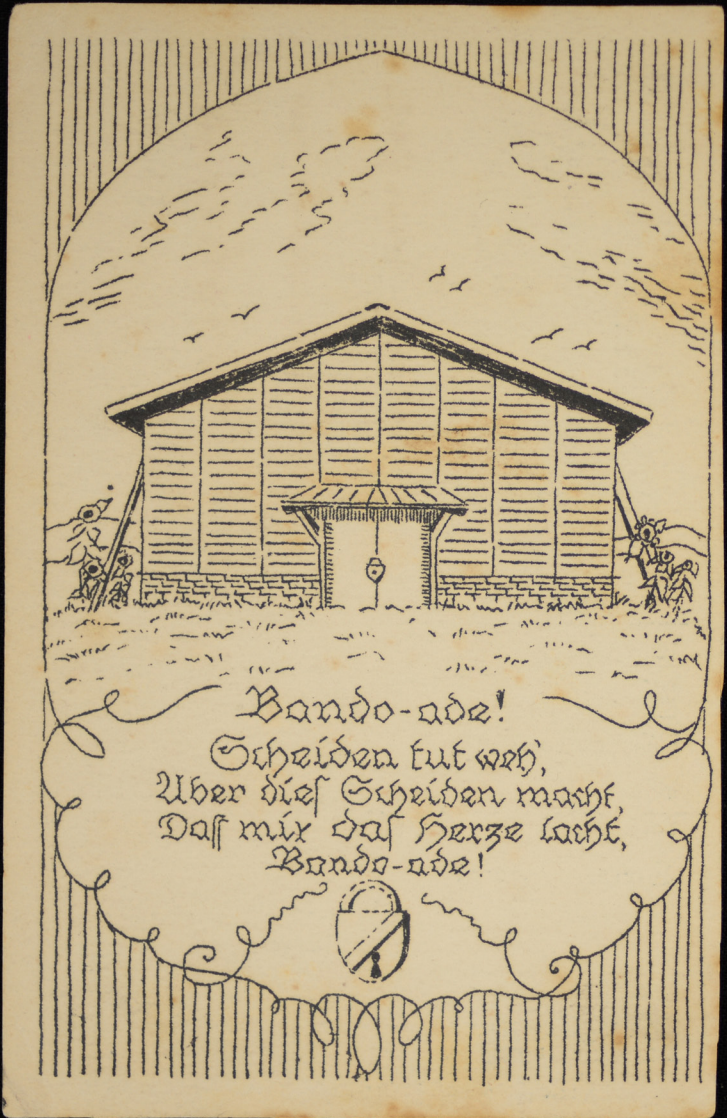 Bando-ade!
Scheiden tut weh',
Aber dieſ Scheiden macht,
Daſſ mir daſ Herze lacht,
Bando-ade!